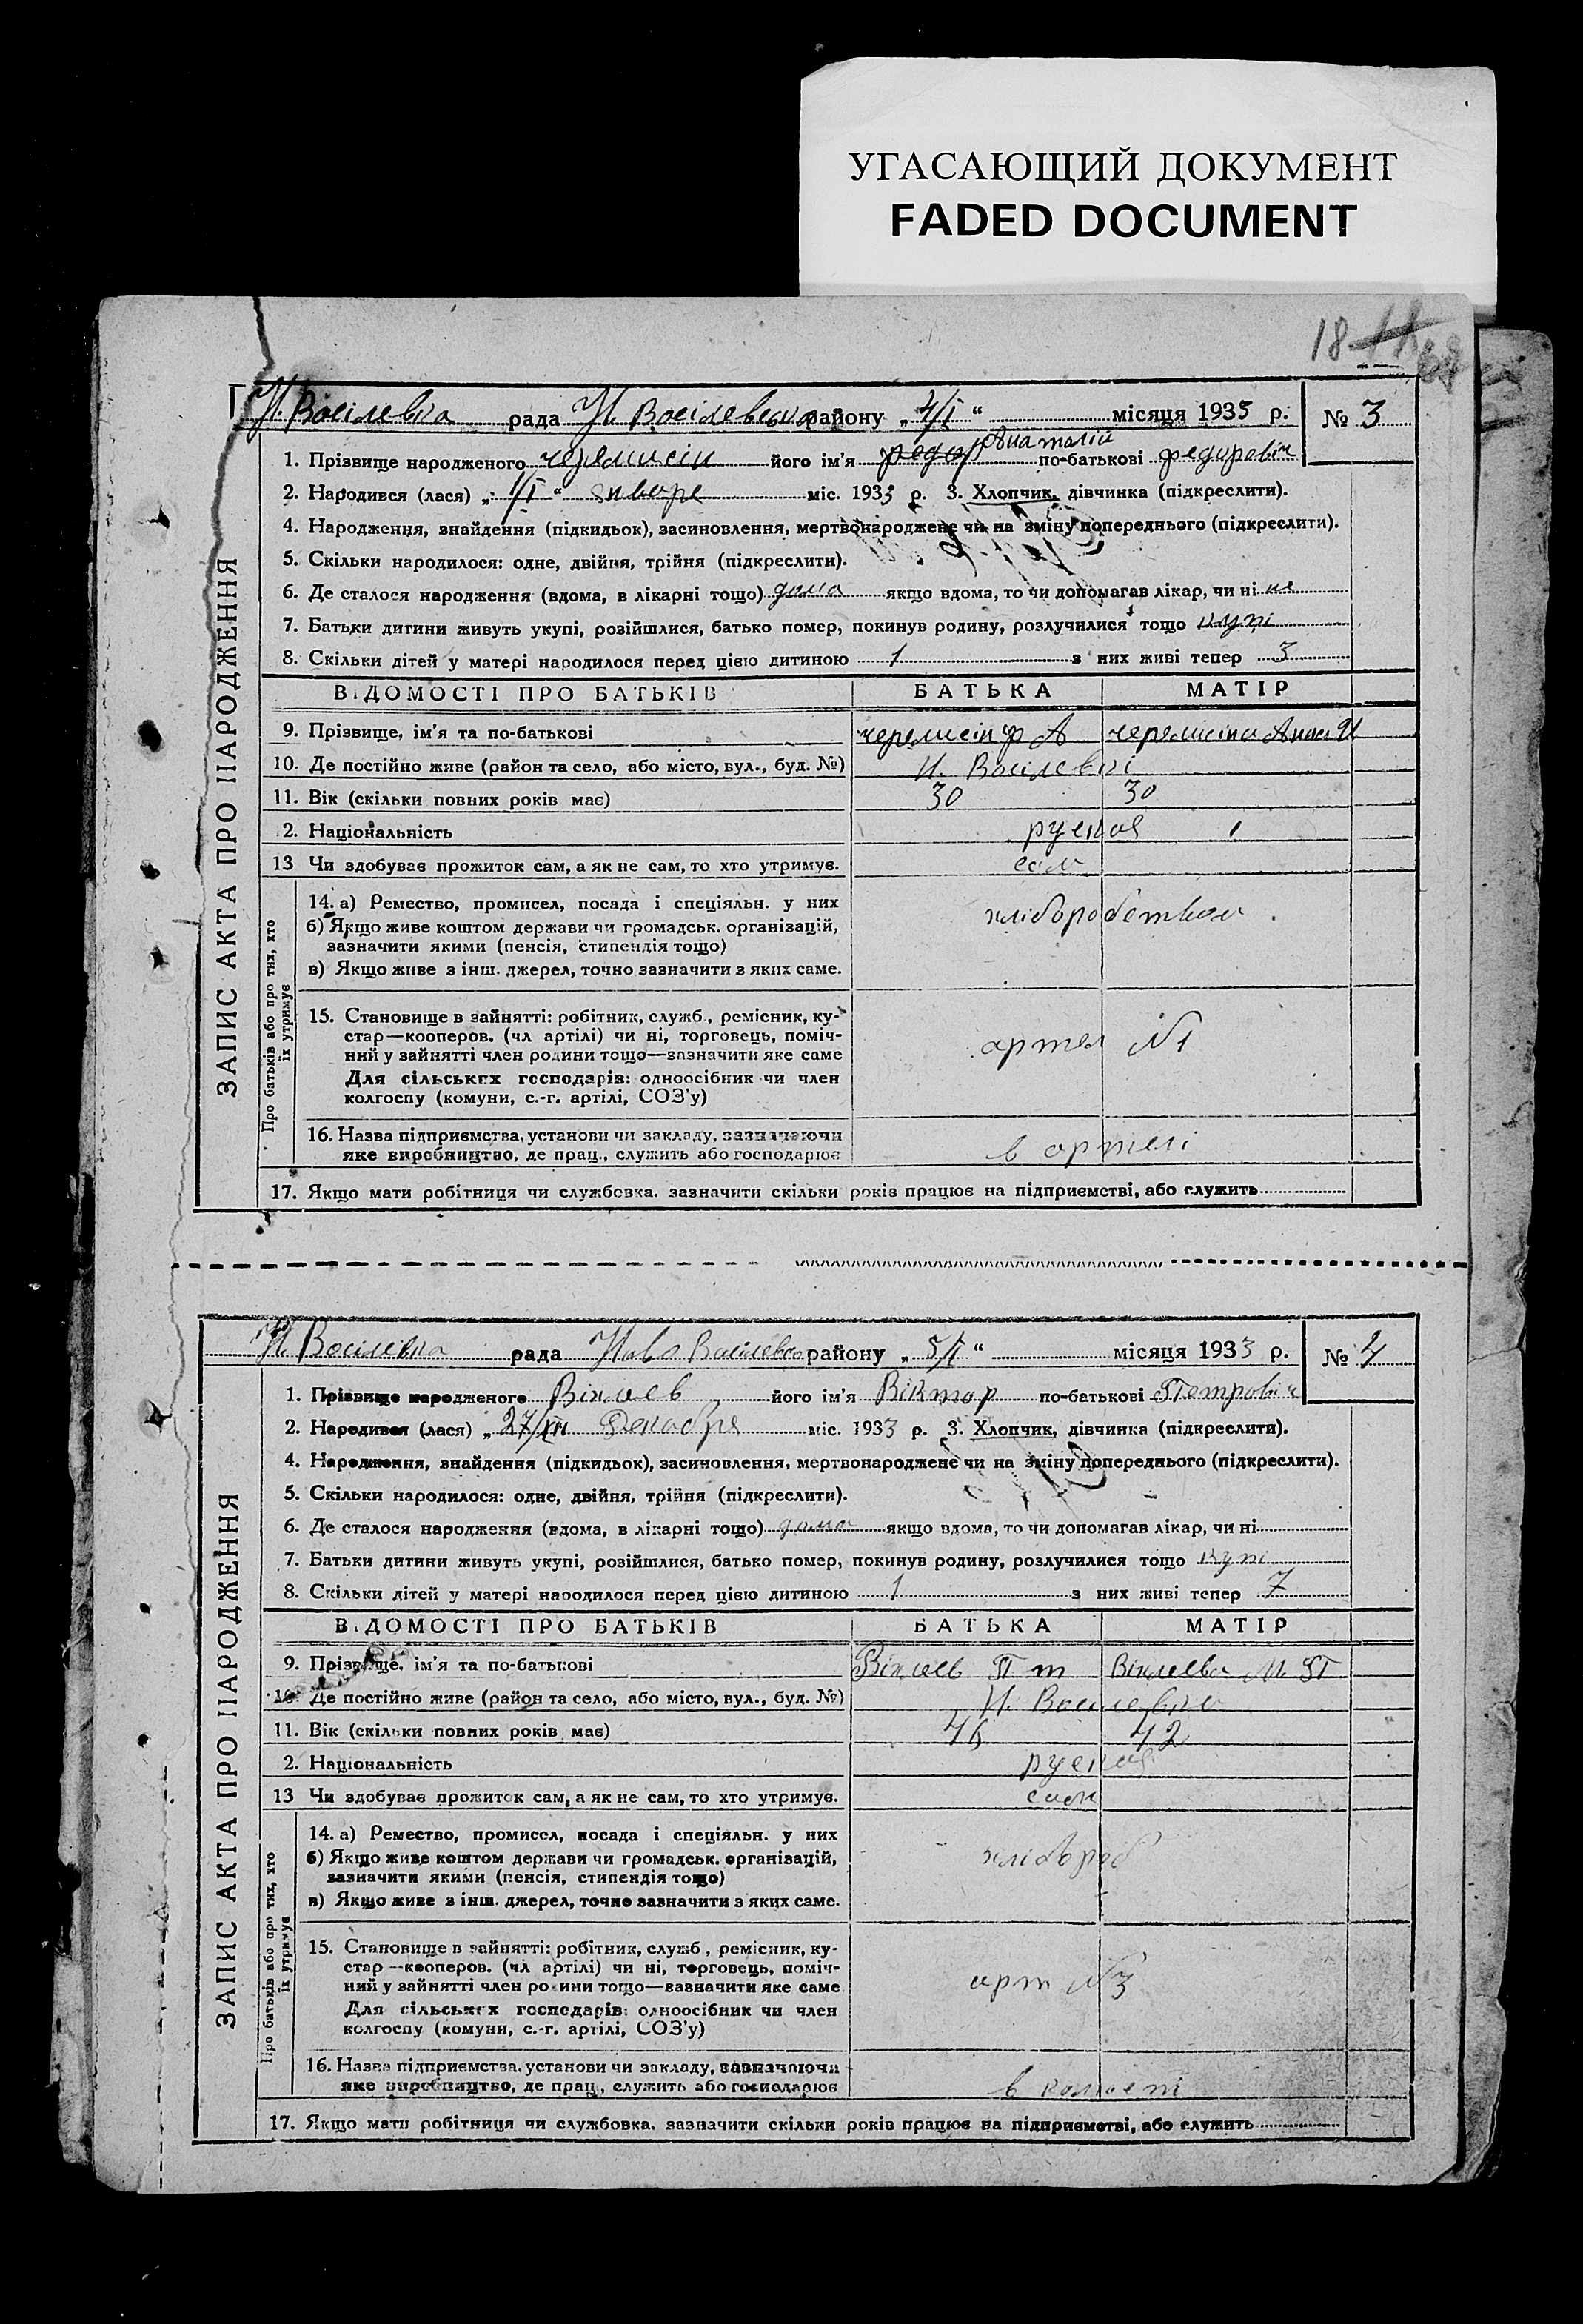 УГАСАЮЩИЙ ДОКУМЕНТ
FADED DOCUMENT
18
ЗАПИС АКТА ПРО НАРОДЖЕННЯ
Н. Васілевка рада Н Васілевська району „4/I“ місяця 1933 р. № 3
1. Прізвище народженого черемисін його ім'я Анатолій по-батькові федоровіч
2. Народився (лася) „1/I“ январе міс. 1933 р. 3. Хлопчик, дівчинка (підкреслити).
4. Народження, знайдення (підкидьок), засиновлення, мертвонароджене чи на зміну попереднього (підкреслити).
5. Скільки народилося: одне, двійня, трійня (підкреслити).
6. Де сталося народження (вдома, в лікарні тощо) дома якщо вдома, то чи допомагав лікар, чи ні не
7. Батьки дитини живуть укупі, розійшлися, батько помер, покинув родину, розлучилися тощо купі
8. Скільки дітей у матері народилося перед цією дитиною 1 з них живі тепер 3
ВІДОМОСТІ ПРО БАТЬКІВ БАТЬКА МАТІР
9. Прізвище, ім'я та по-батькові черемисін Ф А черемисіна Анас И
10. Де постійно живе (район та село, або місто, вул., буд. №) Н. Васілевкі
11. Вік (скільки повних років має) 30 30
2. Національність руская
13 Чи здобуває прожиток сам, а як не сам, то хто утримує. сам
Про батьків або про тих, хто їх утримує
14. а) Ремество, промисел, посада і спеціяльн. у них
б) Якщо живе коштом держави чи громадськ. організацій,
зазначити якими (пенсія, стипендія тощо)
в) Якщо живе з інш. джерел, точно зазначити з яких саме.
хліборобством
15. Становище в зайнятті: робітник, служб., ремісник, ку-
стар—кооперов. (чл артілі) чи ні, торговець, поміч-
ний у зайнятті член родини тощо—зазначити яке саме
Для сільських господарів: одноосібник чи член
колгоспу (комуни, с.-г. артілі, СОЗ'у)
артел №1
16. Назва підприємства, установи чи закладу, зазначаючи
яке виробництво, де прац., служить або господарює в артелі
17. Якщо мати робітниця чи службовка, зазначити скільки років працює на підприємстві, або служить
ЗАПИС АКТА ПРО НАРОДЖЕННЯ
Н. Васілевка рада Ново Васілевско району „5/I“ місяця 1933 р. № 4
1. Прізвище народженого його ім'я Віктор по-батькові Петровіч
2. Народився (лася) „27/XII Декабря міс. 1933 р. 3. Хлопчик, дівчинка (підкреслити).
4. Народження, знайдення (підкидьок), засиновлення, мертвонароджене чи на зміну попереднього (підкреслити).
5. Скільки народилося: одне, двійня, трійня (підкреслити).
6. Де сталося народження (вдома, в лікарні тощо) дома якщо вдома, то чи допомагав лікар, чи ні
7. Батьки дитини живуть укупі, розійшлися, батько помер, покинув родину, розлучилися тощо купі
8. Скільки дітей у матері народилося перед цією дитиною 1 з них живі тепер 7
ВІДОМОСТІ ПРО БАТЬКІВ БАТЬКА МАТІР
9. Прізвище, ім'я та по-батькові П т М. П
10. Де постійно живе (район та село, або місто, вул., буд. №) Н. Васілевка
11. Вік (скільки повних років має) 42
2. Національність руская
13 Чи здобуває прожиток сам, а як не сам, то хто утримує. сам
Про батьків або про тих, хто їх утримує
14. а) Ремество, промисел, посада і спеціяльн. у них
б) Якщо живе коштом держави чи громадськ. організацій,
зазначити якими (пенсія, стипендія тощо)
в) Якщо живе з інш. джерел, точно зазначити з яких саме.
хлібороб
15. Становище в зайнятті: робітник, служб., ремісник, ку-
стар—кооперов. (чл артілі) чи ні, торговець, поміч-
ний у зайнятті член родини тощо—зазначити яке саме
Для сільських господарів: одноосібник чи член
колгоспу (комуни, с.-г. артілі, СОЗ'у)
арт №3
16. Назва підприємства, установи чи закладу, зазначаючи
яке виробництво, де прац., служить або господарює в
17. Якщо мати робітниця чи службовка, зазначити скільки років працює на підприємстві, або служить